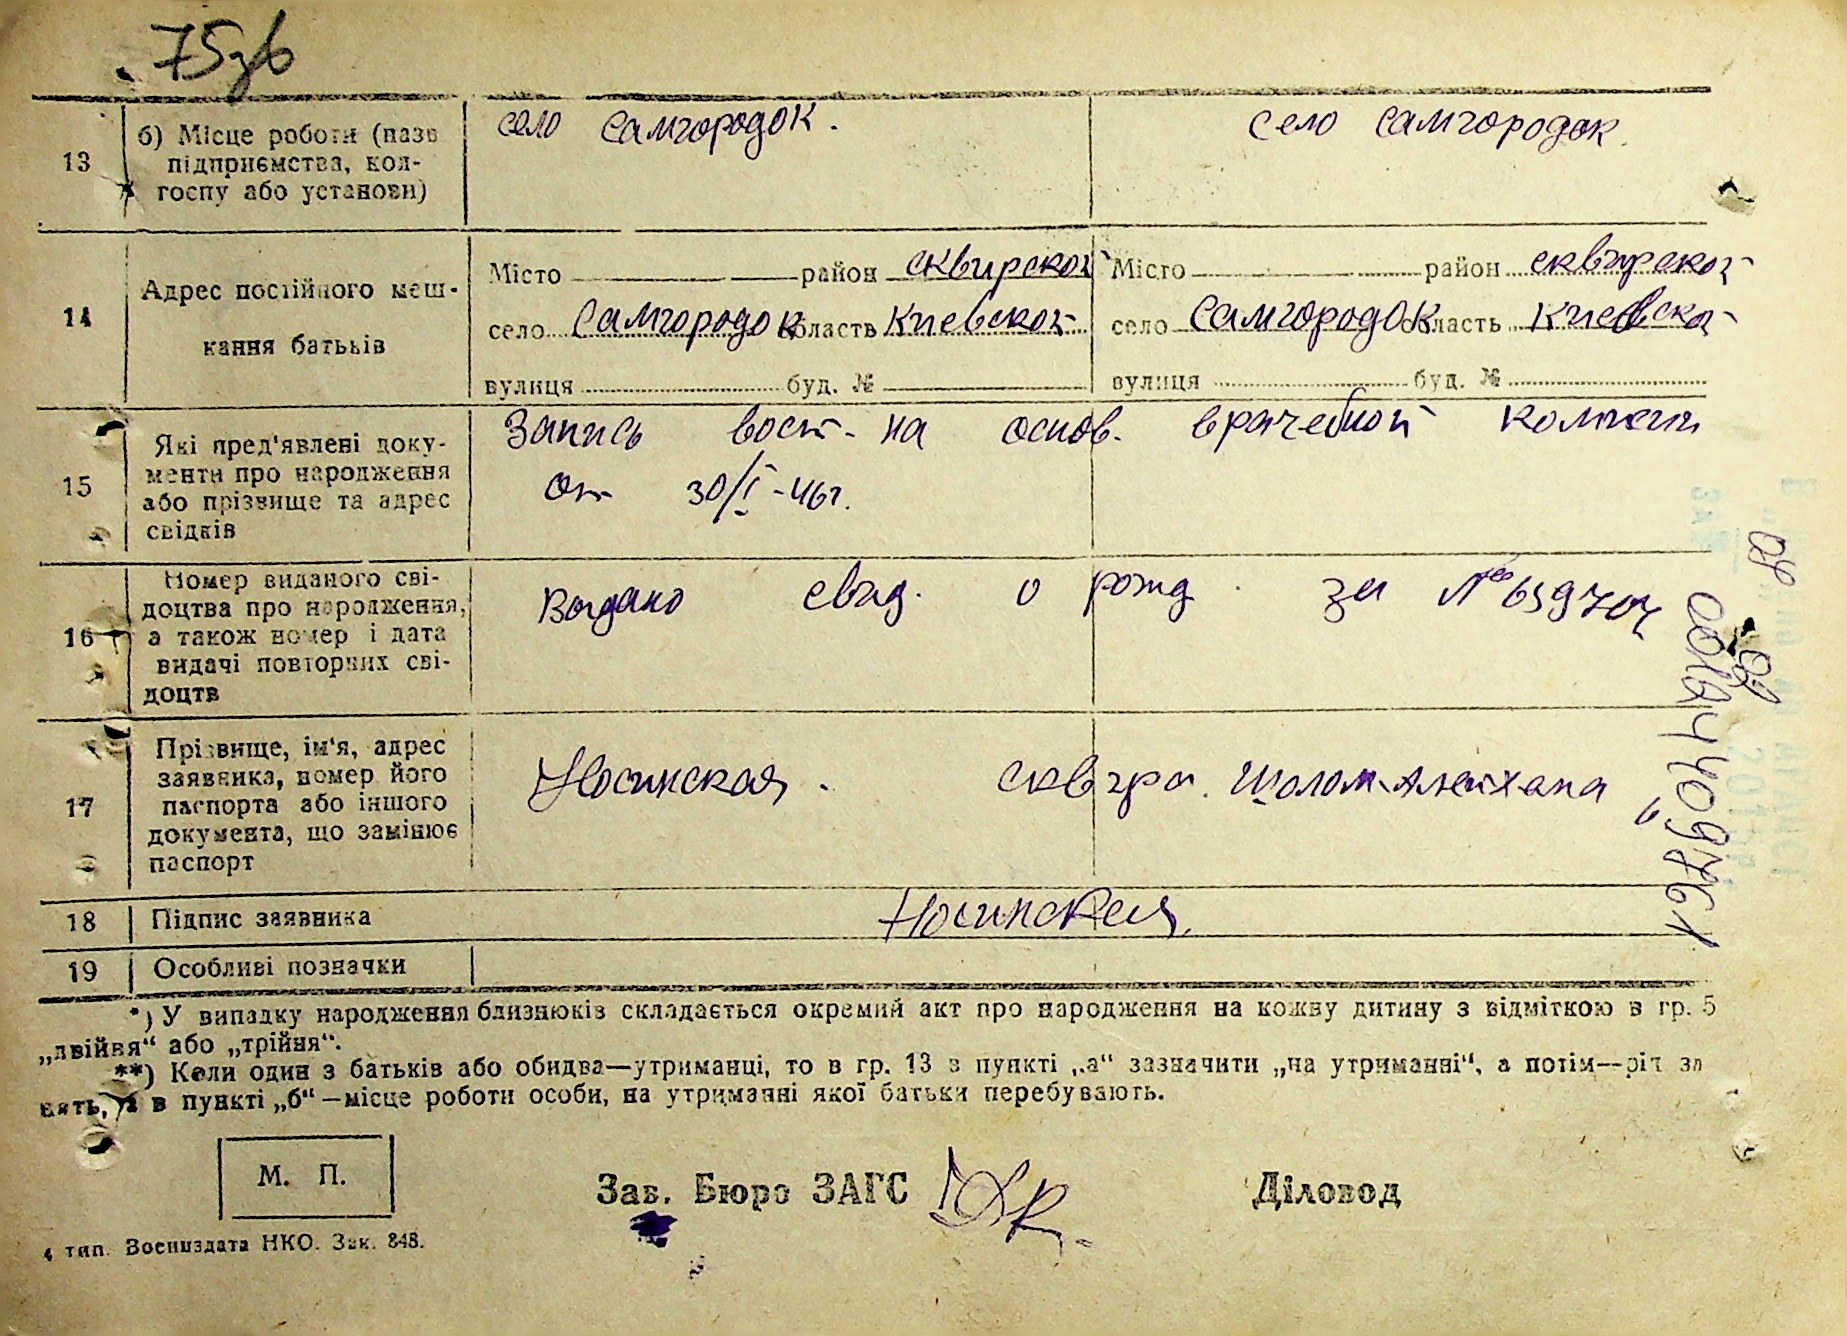 75зв
13
б) Місце роботи (назв
підприємства, кол-
госпу або установи)
село Самгородок.
село Самгородок.
14
Адрес постійного меш-
кання батьків
Місто район сквирской
село Самгородок область Киевской
вулиця буд. №
Місто район сквирской
село Самгородок область Киевской
вулиця буд. №
15
Які пред'явлені доку-
менти про народження
або прізвище та адрес
свідків
Запись вост. на основ. врачебной комисии
от 30/I-46г.
16
Номер виданого сві-
доцтва про народження,
а також номер і дата
видачі повторних сві-
доцтв
Выдано свид. о рожд. за №
17
Прізвище, ім'я, адрес
заявника, номер його
паспорта або іншого
документа, що замінює
паспорт
Носинская. сквира. Шолом-Алейхема
18
Підпис заявника
Носинская
19
Особливі позначки
*) У випадку народження близнюків складається окремий акт про народження на кожну дитину з відміткою в гр. 5
„двійня“ або „трійня“.
**) Коли один з батьків або обидва—утриманці, то в гр. 13 в пункті „а“ зазначити „на утриманні“, а потім—рід за
нять, а в пункті „б“—місце роботи особи, на утриманні якої батьки перебувають.
М. П.
Зав. Бюро ЗАГС
Діловод
4 тип. Воениздата НКО. Зак. 848.